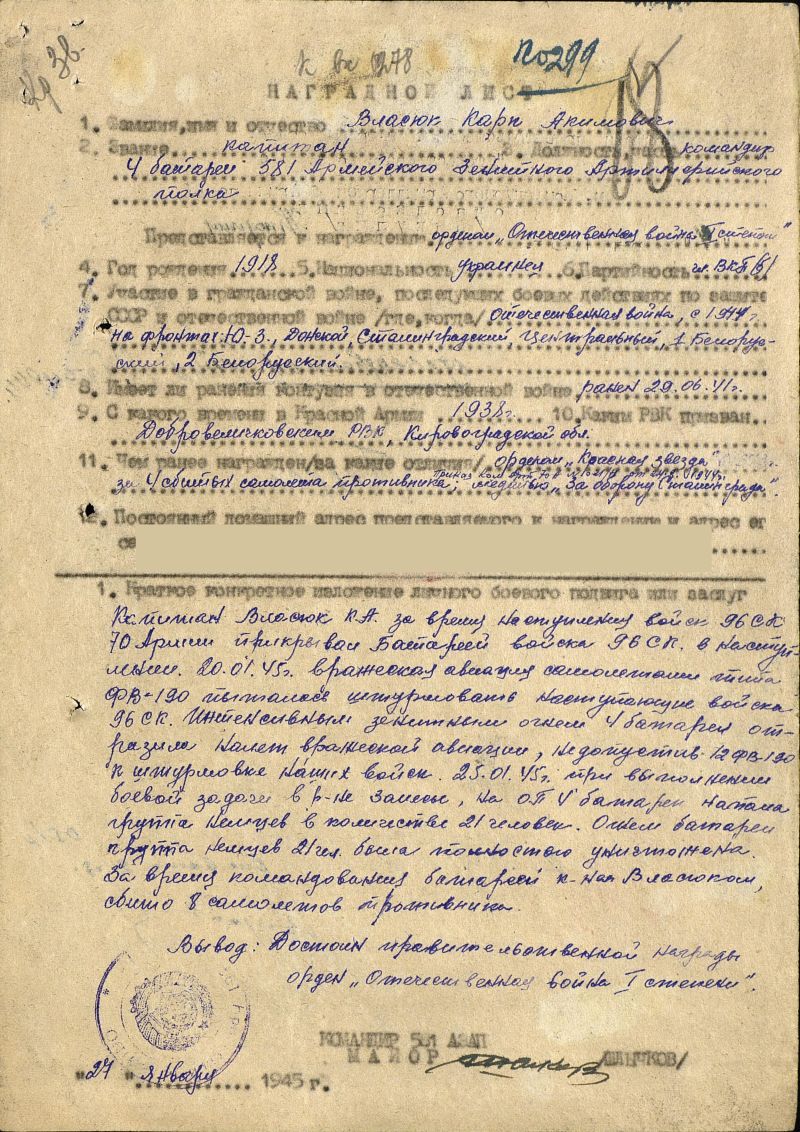 к вх 1278
По 299
13
НАГРАДНОЙ ЛИСТ
1. Фамилия,имя и отчество Власюк Карп Акимович
2. Звание капитан 3. Должность,часть командир
4 батареи 581 Армейского Зенитного Артиллерийского
полка
Представляется к награждению орденом „Отечественная война I степени"
4. Год рождения 1918 5. Национальность украинец 6. Партийность чл. ВКП(б)
7. Участие в гражданской войне, последующих боевых действиях по защите
СССР и отечественной войне /где,когда/ отечественная война, с 1941г.
на фронтах: Ю-З., Донской, Сталинградский, Центральный, 1 Белорус-
ский, 2 Белорусский.
8. Имеет ли ранения контузия в отечественной войне ранен 29.06.41г.
9. С какого времени в Красной Армии 1938г. 10. Каким РВК призван
Добровеличковским РВК, Кировоградской обл.
11. Чем ранее награжден/за какие отличия/ орденом „Красная звезда"
за 4 сбитых самолета противника; медалью „За оборону Сталинграда".
12. Постоянный домашний адрес представляемого к награждению и адрес ег
се
1. Краткое конкретное изложение личного боевого подвига или заслуг
Капитан Власюк К.А. за время наступления войск 96 СК
70 Армии прикрывал батареей войска 96 СК. в наступ-
лении. 20.01.45г. вражеская авиация самолетами типа
ФВ-190 пыталась штурмовать наступающие войска
96 СК. Интенсивным зенитным огнем 4 батарея от-
разила налет вражеской авиации, недопустив 12 ФВ-190
к штурмовке наших войск. 25.01.45г. при выполнении
боевой задачи в р-не Замосы, на ОП 4 батареи напала
группа немцев в количестве 21 человек. Огнем батареи
группа немцев 21 чел. была полностью уничтожена.
За время командования батареей к-ном Власюком,
сбито 8 самолетов противника.
Вывод: Достоин правительственной награды
орден „Отечественная война I степени".
КОМАНДИР 581 АЗАП
МАЙОР
"27" января 1945 г.